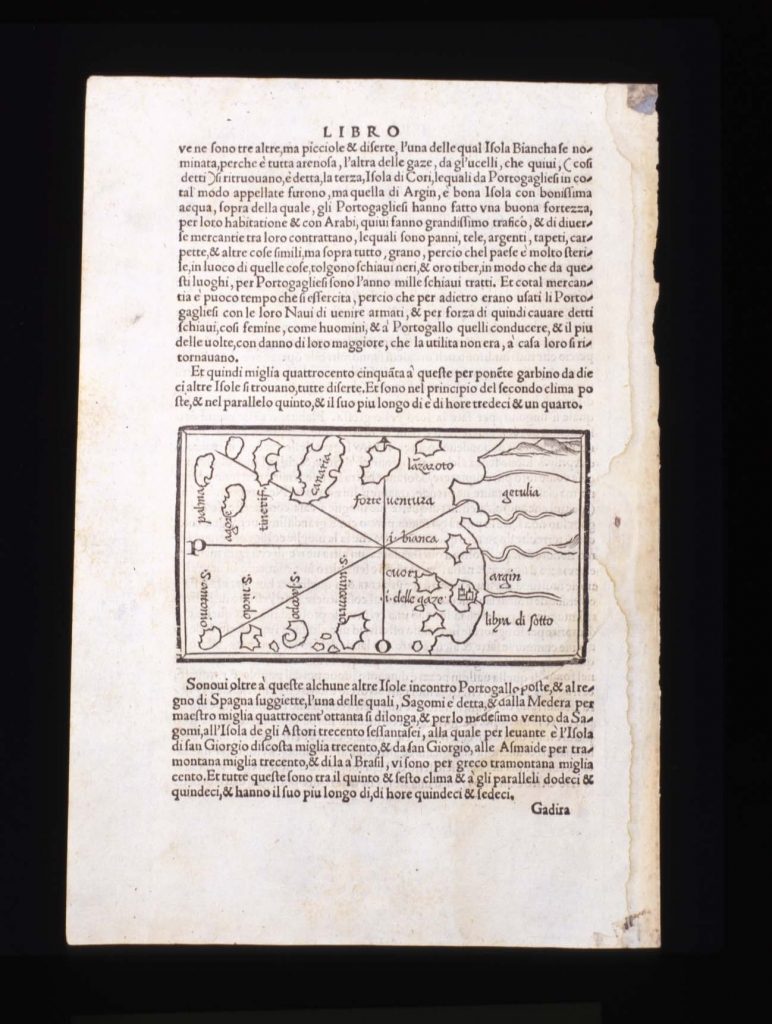 LIBRO
ve ne sono tre altre, ma picciole & diserte, l'una delle qual Isola Biancha se no-
minata, perche è tutta arenosa, l'altra delle gaze, da gl'ucelli, che quiui, (cosi
detti) si ritruouano, è detta, la terza, Isola di Cori, lequali da Portogagliesi in co-
tal modo appellate furono, ma quella di Argin, è bona Isola con bonissima
acqua, sopra della quale, gli Portogagliesi hanno fatto vna buona fortezza,
per loro habitatione & con Arabi, quiui fanno grandissimo trafico, & di diuer-
se mercantie tra loro contrattano, lequali sono panni, tele, argenti, tapeti, car-
pette, & altre cose simili, ma sopra tutto, grano, percio chel paese è molto steri-
le, in luoco di quelle cose, tolgono schiaui neri, & oro tiber, in modo che da que-
sti luoghi, per Portogagliesi sono l'anno mille schiaui tratti. Et cotal mercan-
tia è puoco tempo che si essercita, percio che per adietro erano usati li Porto-
gagliesi con le loro Naui di uenire armati, & per forza di quindi cauare detti
schiaui, cosi femine, come huomini, & à Portogallo quelli conducere, & il piu
delle uolte, con danno di loro maggiore, che la utilita non era, à casa loro si ri-
tornauano.
Et quindi miglia quattrocento cinquãta à queste per ponẽte garbino da die
ci altre Isole si trouano, tutte diserte. Et sono nel principio del secondo clima po
ste, & nel parallelo quinto, & il suo piu longo di è di hore tredeci & un quarto.
palma
agose
tinerif
canaria
forte uentura
lãzaroto
getulia
P
i. bianca
cuori
i. delle gaze
argin
libya di sotto
S. antonio
S. nicolo
S. Jacopo
O
Sonoui oltre à queste alchune altre Isole incontro Portogallo poste, & al re-
gno di Spagna suggiette, l'una delle quali, Sagomi è detta, & dalla Medera per
maestro miglia quattrocent'ottanta si dilonga, & per lo medesimo vento da Sa-
gomi, all'Isola de gli Astori trecento sessantasei, alla quale per leuante è l'Isola
di san Giorgio discosta miglia trecento, & da san Giorgio, alle Asmaide per tra-
montana miglia trecento, & di la à Brasil, vi sono per greco tramontana miglia
cento. Et tutte queste sono tra il quinto & sesto clima & à gli paralleli dodeci &
quindeci, & hanno il suo piu longo di, di hore quindeci & sedeci.
Gadira